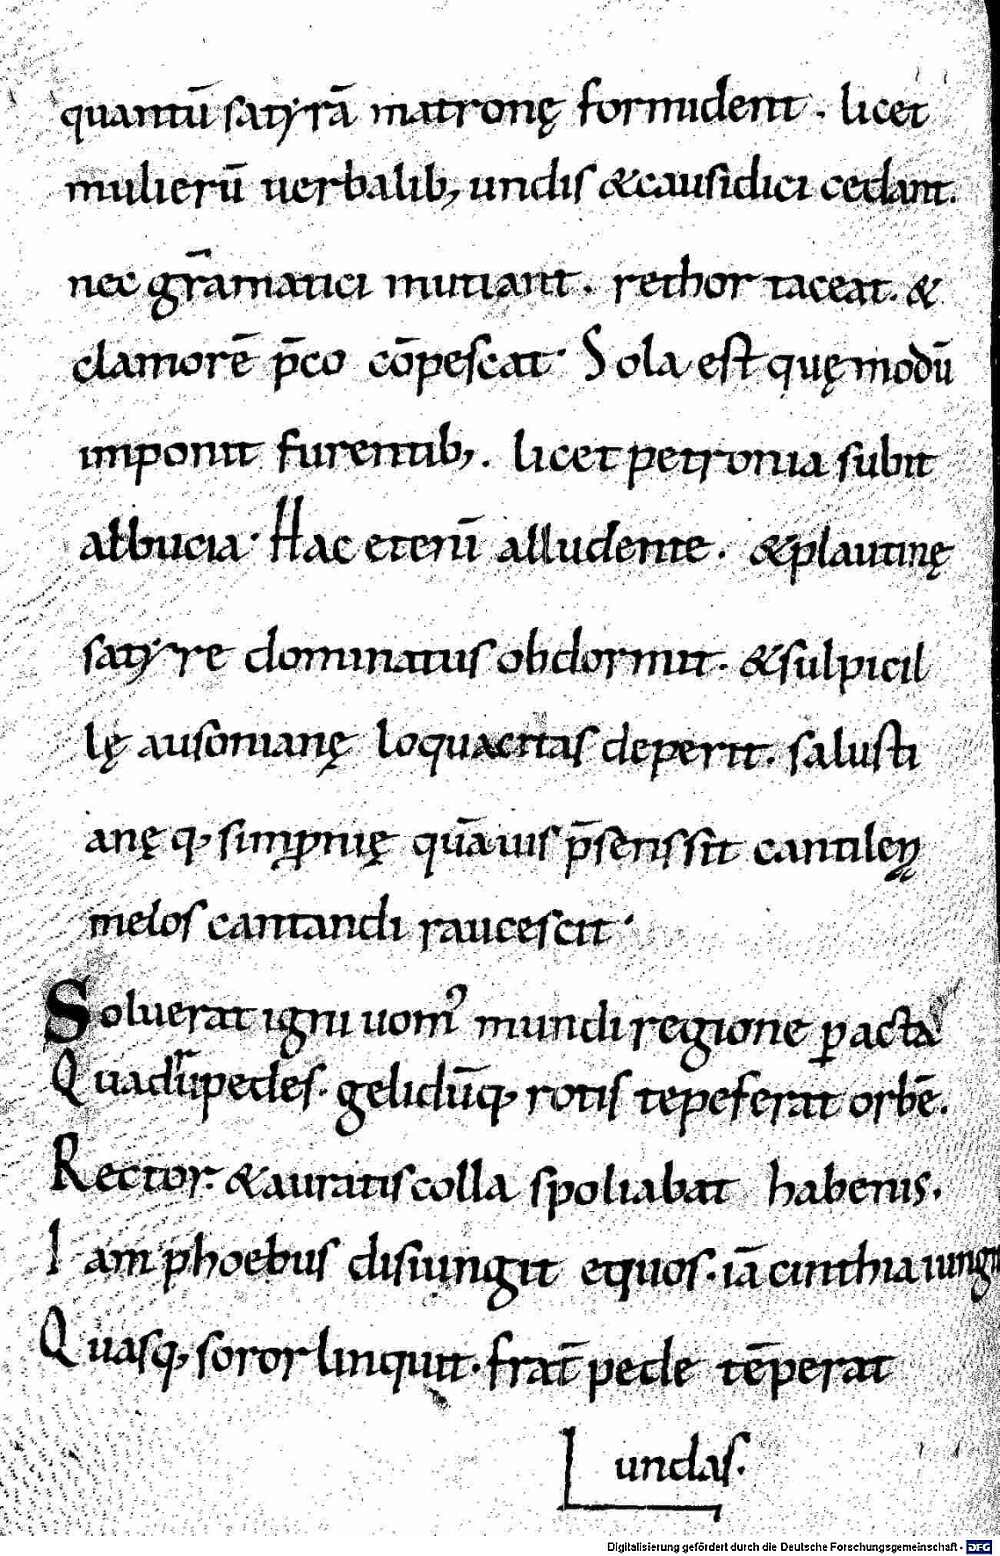 quantū satyrā matronę formident . licet
mulierū uerbalib; undis &causidici cedant.
nec grāmatici mutiant . rethor taceat . &
clamorē p̄co cōpescat · Sola est quę modū
imponit furentib; . licet petronia subit
albucia · Hac etenī alludente . &plautinę
satyre dominatus obdormit . &sulpicil
lę ausonianę loquacitas deperit . salusti
anę q; simpronię quāuis p̄sens sit cantilenę
melos cantandi raucescit ·
Soluerat igni uom᾽ mundi regione ꝑacta
Quadrupedes . gelidūq; rotis tepeferat orbē .
Rector . &auratis colla spoliabat habenis .
Iam phoebus disiungit equos . iā cinthia iungit
Quasq; soror linquit . frat̄ pede tēperat
undas .
Digitalisierung gefördert durch die Deutsche Forschungsgemeinschaft - DFG